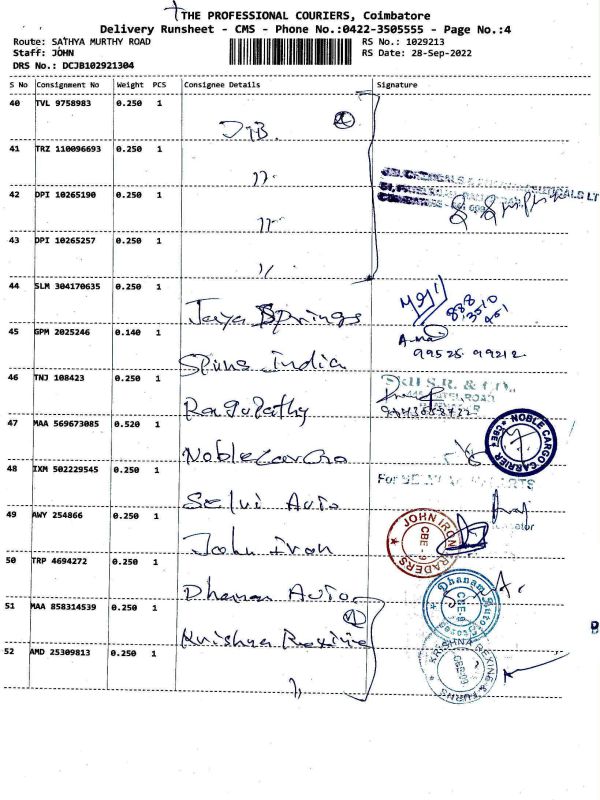 THE PROFESSIONAL COURIERS, Coimbatore
Delivery Runsheet - CMS - Phone No.:0422-3505555 - Page No.:4
Route: SATHYA MURTHY ROAD RS No.: 1029213
Staff: JOHN RS Date: 28-Sep-2022
DRS No.: DCJB102921304
S No Consignment No Weight PCS Consignee Details Signature
40 TVL 9758983 0.250 1
41 TRZ 110096693 0.250 1
42 DPI 10265190 0.250 1
43 DPI 10265257 0.250 1
44 SLM 304170635 0.250 1
Jaya Springs
45 GPM 2025246 0.140 1
99525 99212
Spins India
46 TNJ 108423 0.250 1
S.R. & CO.,
Ragupathy
47 MAA 569673085 0.520 1
NOBLE CARGO CARRIER
CBE-9
Noble Cargo
48 IXM 502229545 0.250 1
For
Selvi Auto
49 AWY 254866 0.250 1
JOHN IRON TRADERS
CBE - 9
John Iron
50 TRP 4694272 0.250 1
Dhanam Auto
CBE - 9
Dhanam Auto
51 MAA 858314539 0.250 1
Krishna Rexine
KRISHNA REXINE & FURNS
52 AMD 25309813 0.250 1